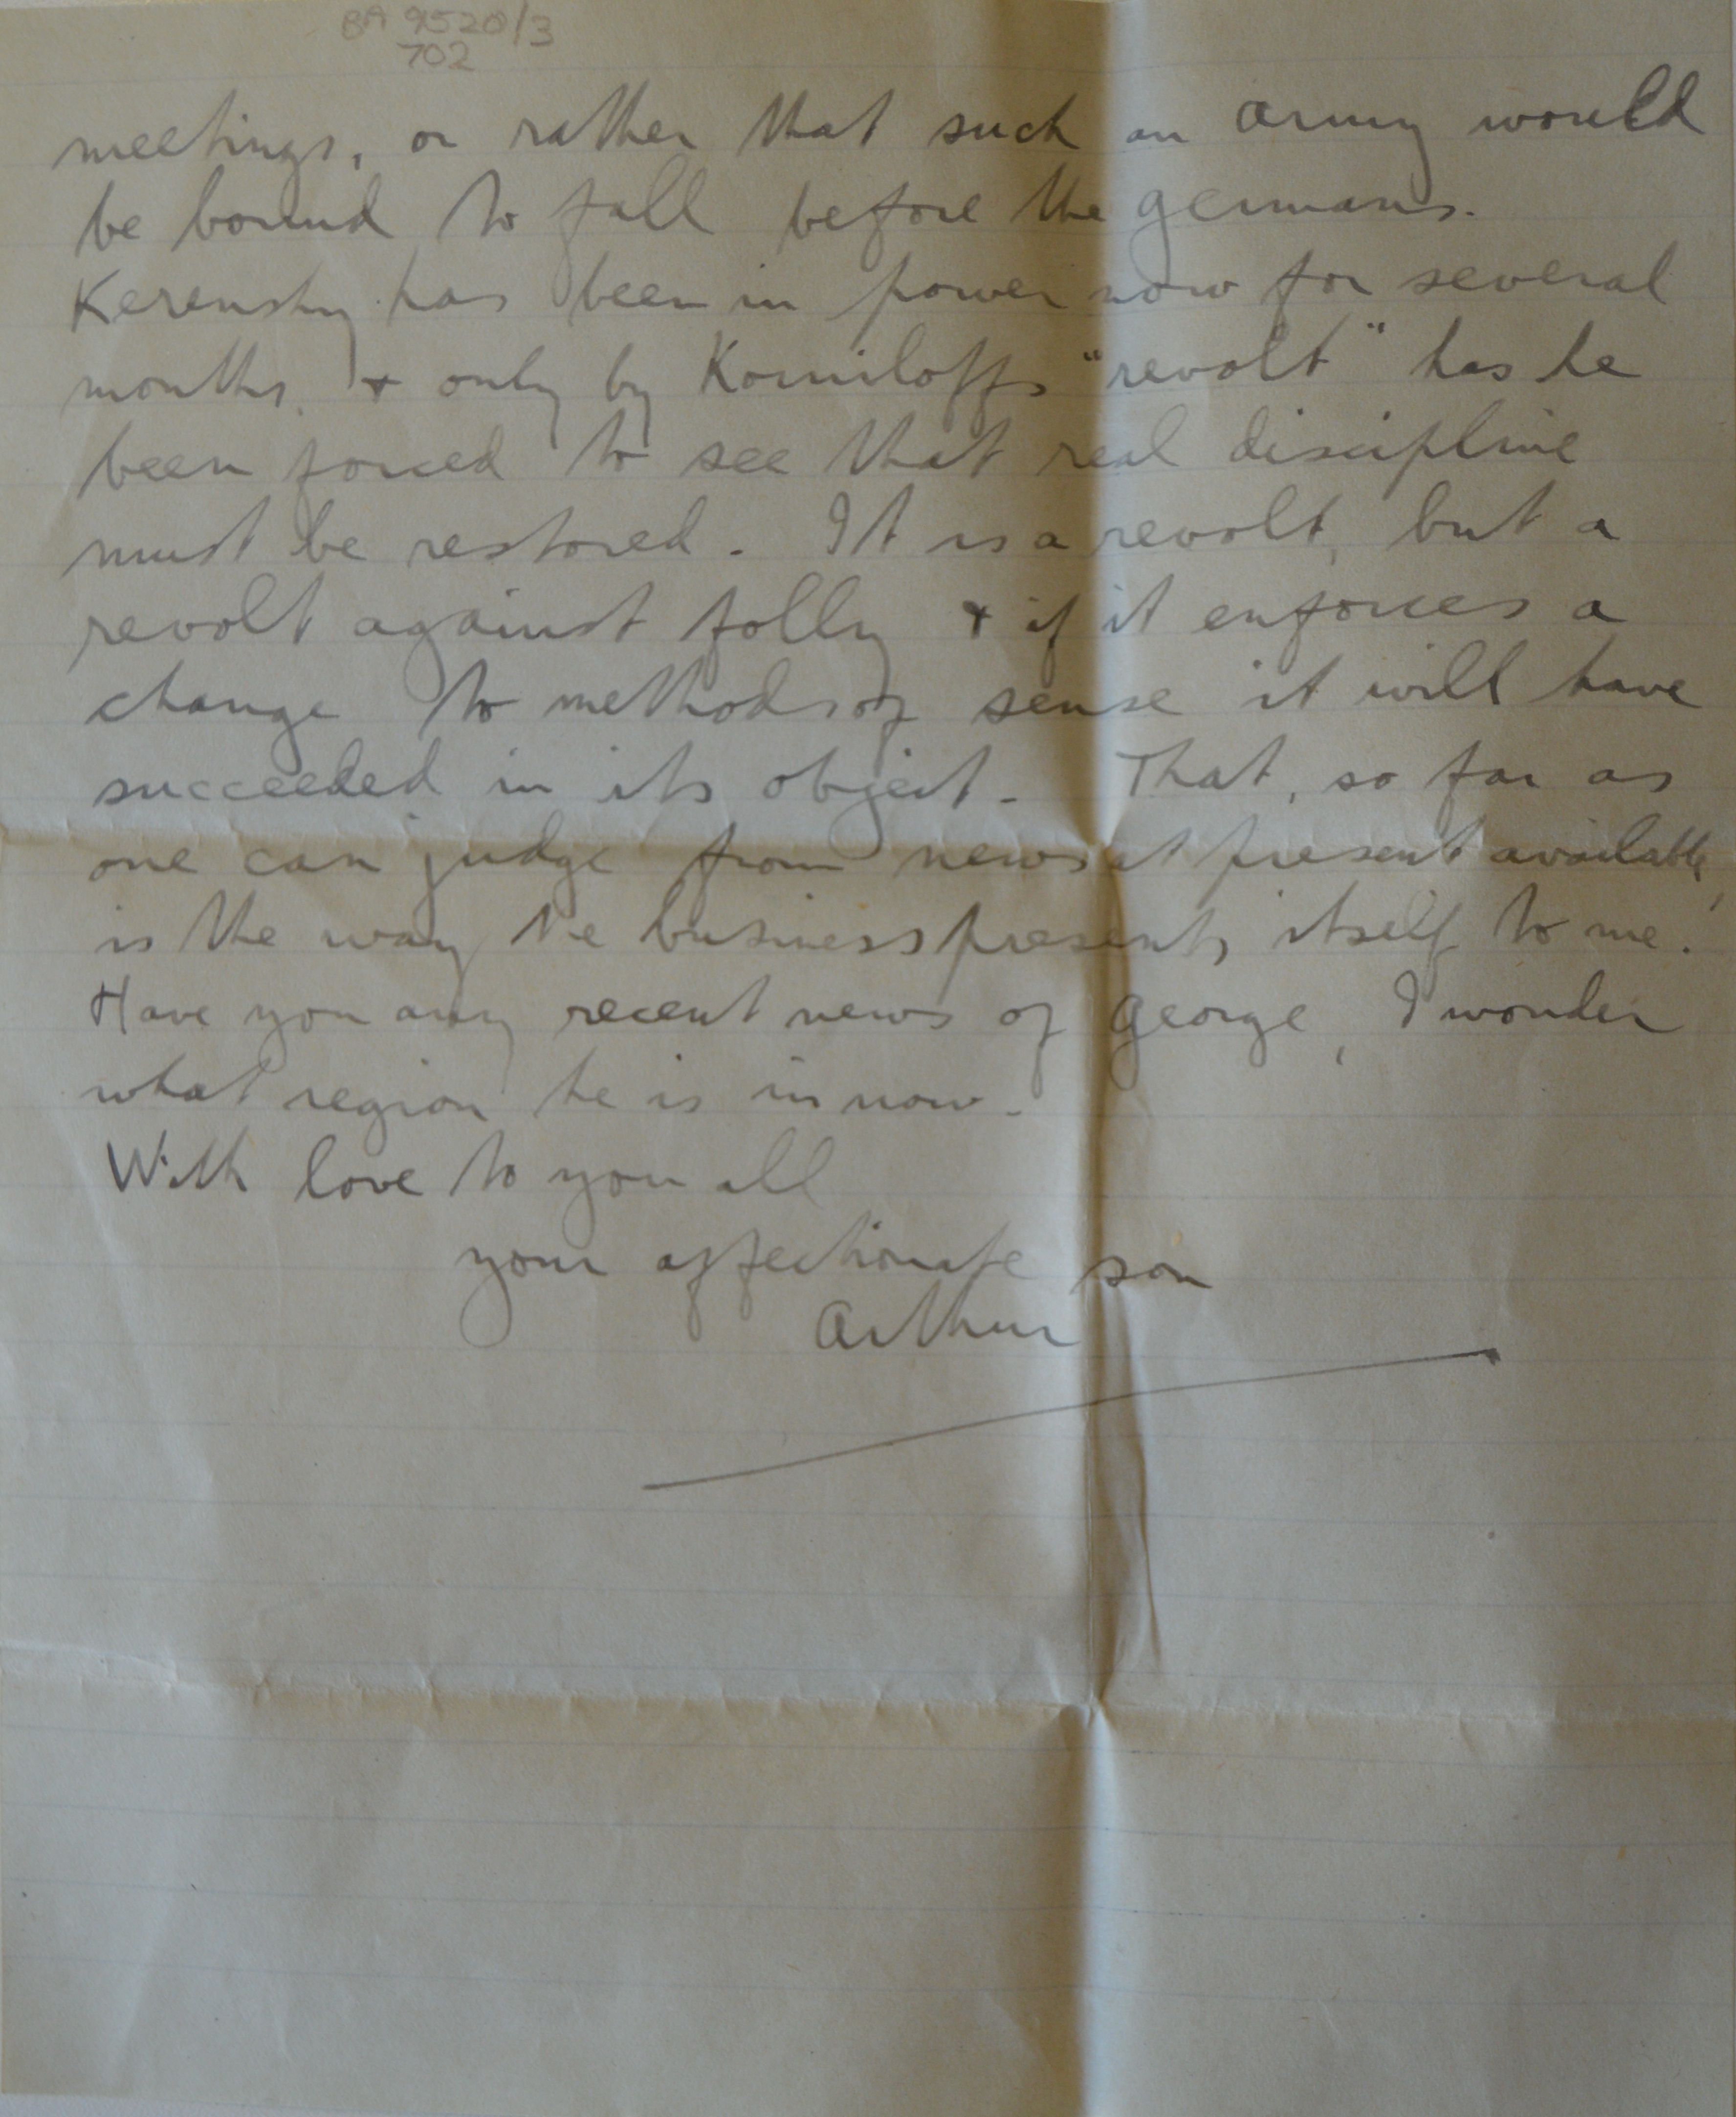 BA 9520/3
702
meetings, or rather that such an army would
be bound to fall before the Germans.
Kerensky has been in power now for several
months, + only by Korniloffs "revolt" has he
been forced to see that real discipline
must be restored. It is a revolt, but a
revolt against folly + if it enforces a
change to methods of sense it will have
succeeded in its object. That, so far as
one can judge from news at present available,
is the way the business presents itself to me.
Have you any recent news of George, I wonder
what region he is in now.
With love to you all
your affectionate son
Arthur